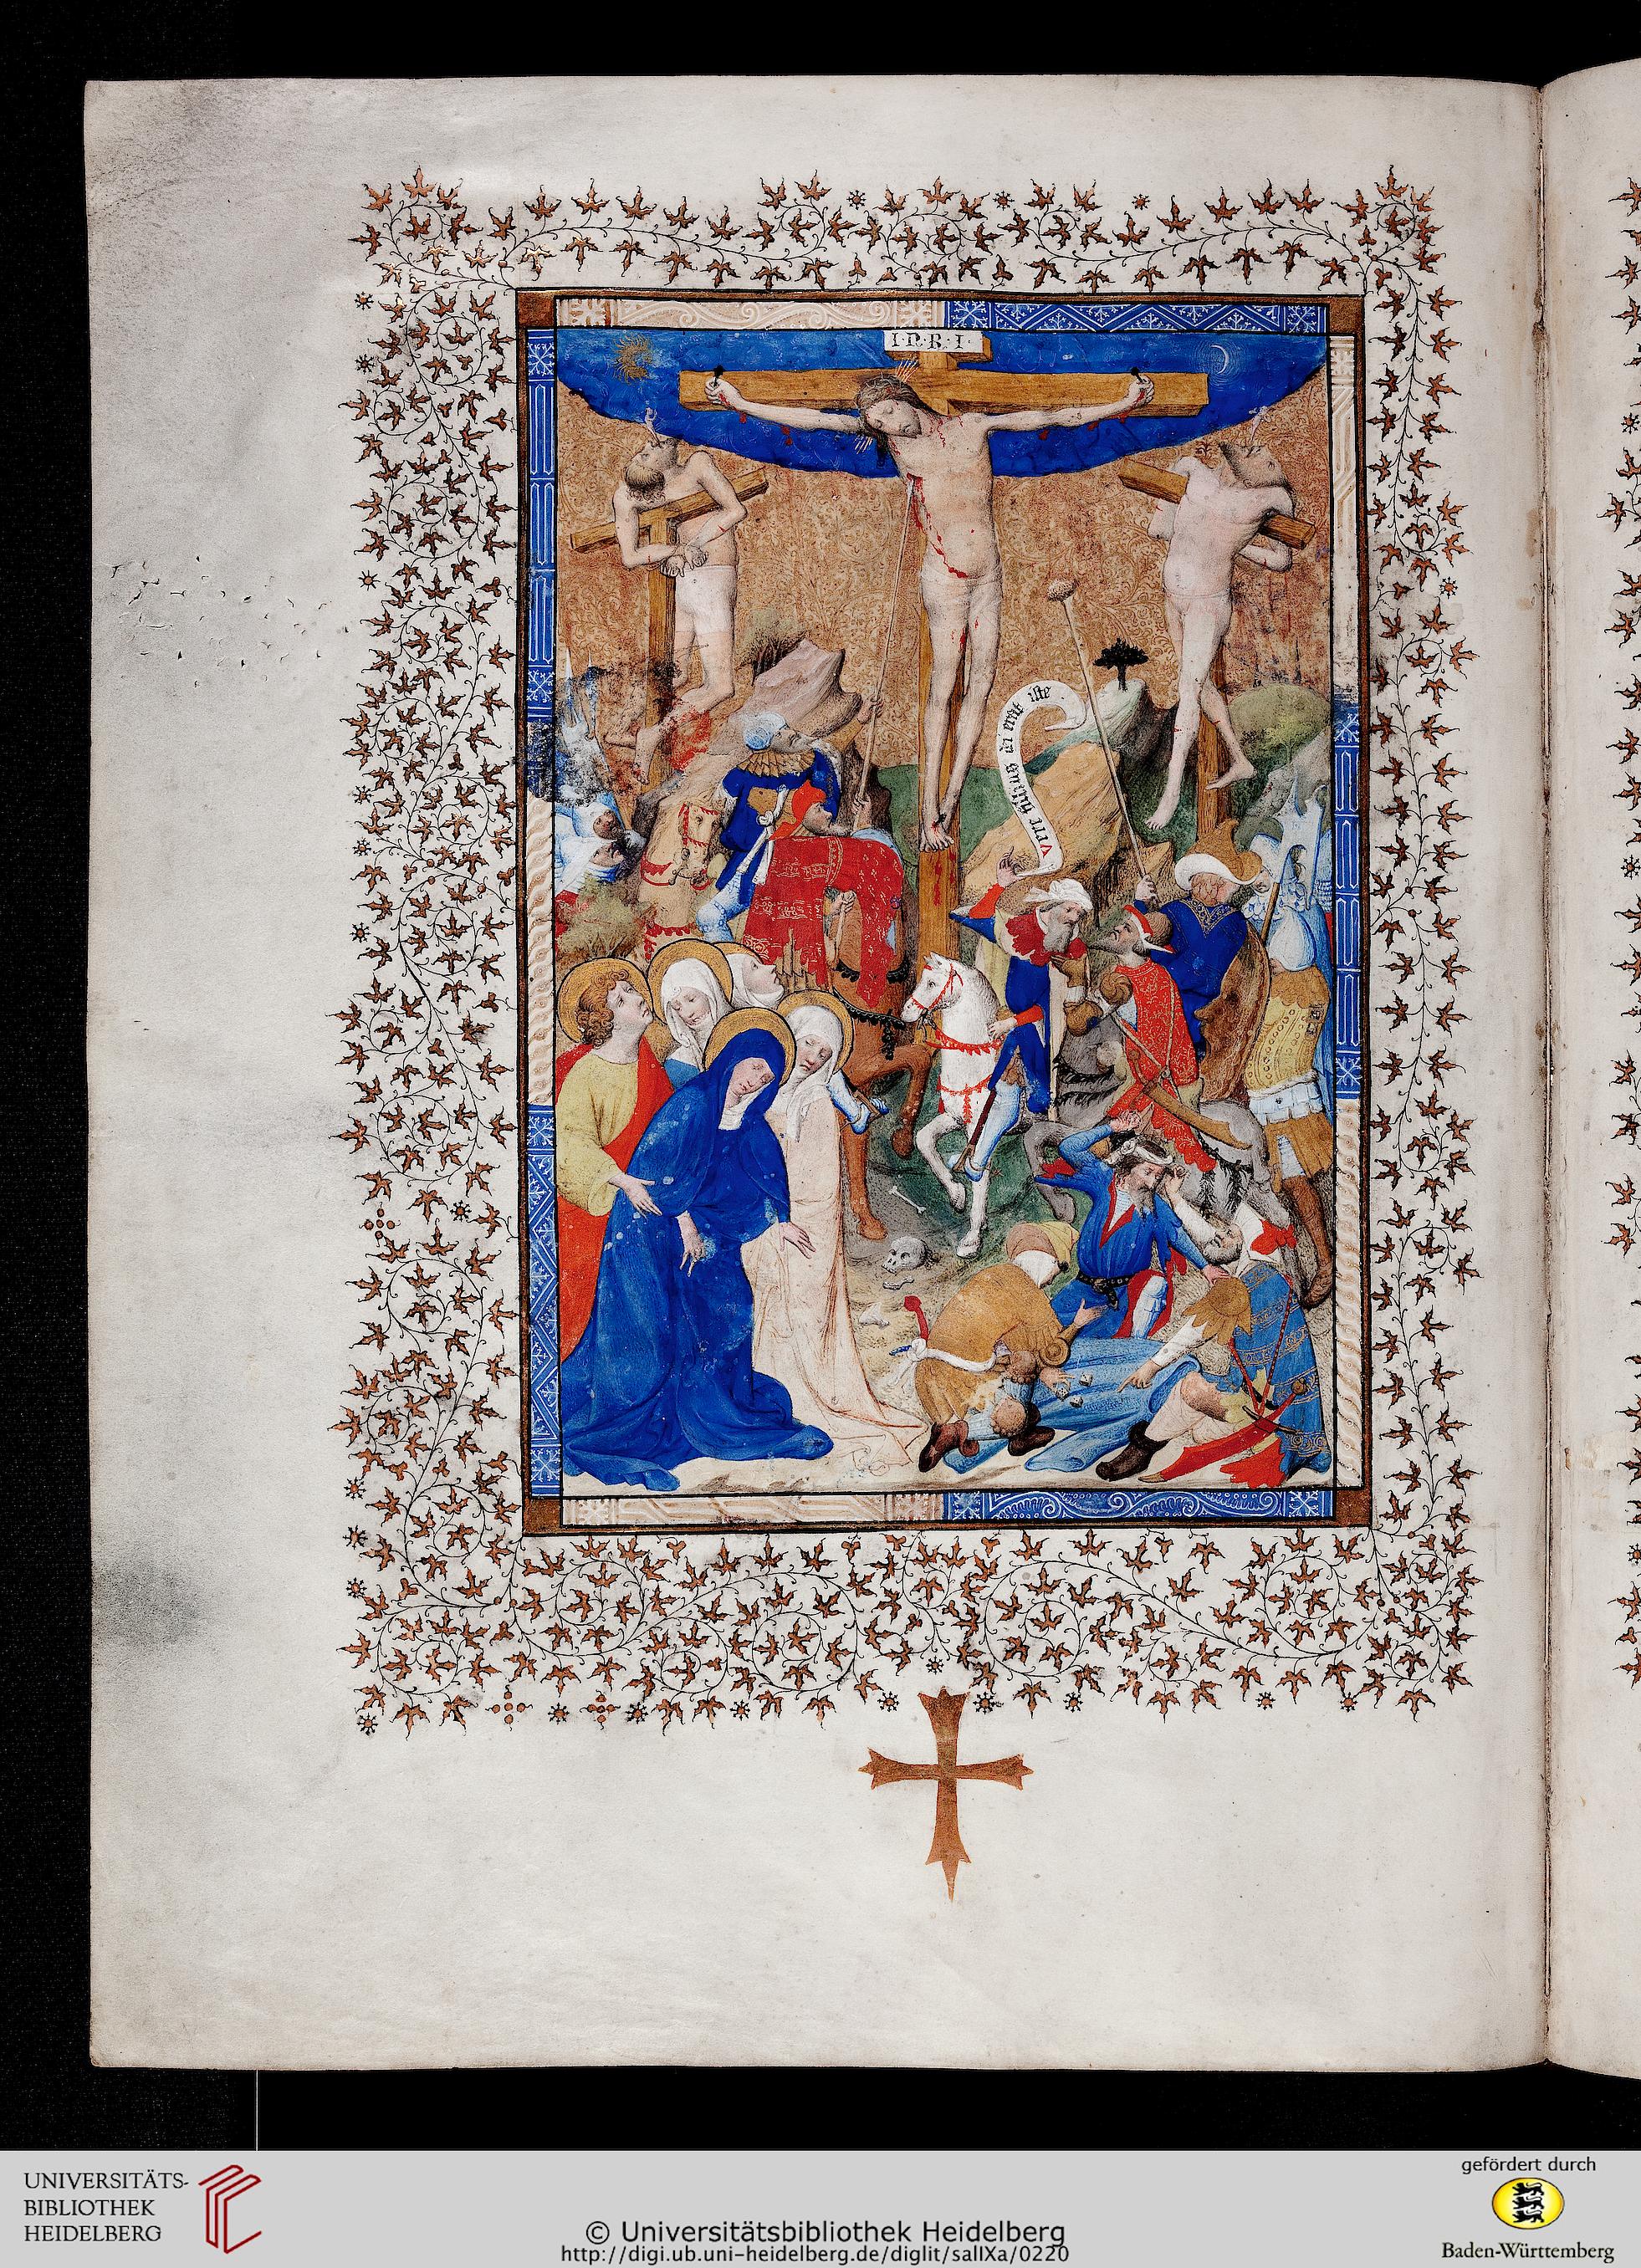 I·N·R·I·
vere filius dī erat iste
UNIVERSITÄTS-
BIBLIOTHEK
HEIDELBERG
© Universitätsbibliothek Heidelberg
http://digi.ub.uni-heidelberg.de/diglit/salIXa/0220
gefördert durch
Baden-Württemberg